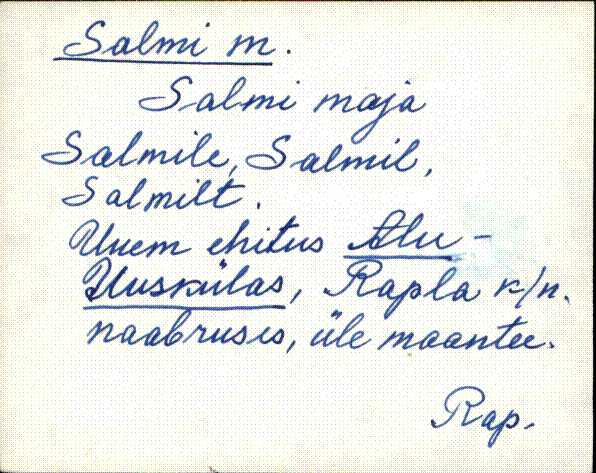 Salmi m.
Salmi maja
Salmile, Salmil,
Salmilt.
Uuem ehitus Alu-
Uuskülas, Rapla k/n.
naabruses, üle maantee.
Rap.